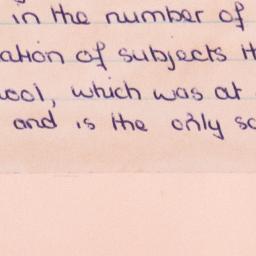 in the number of
ation of subjects
ool, which was at
and is the only